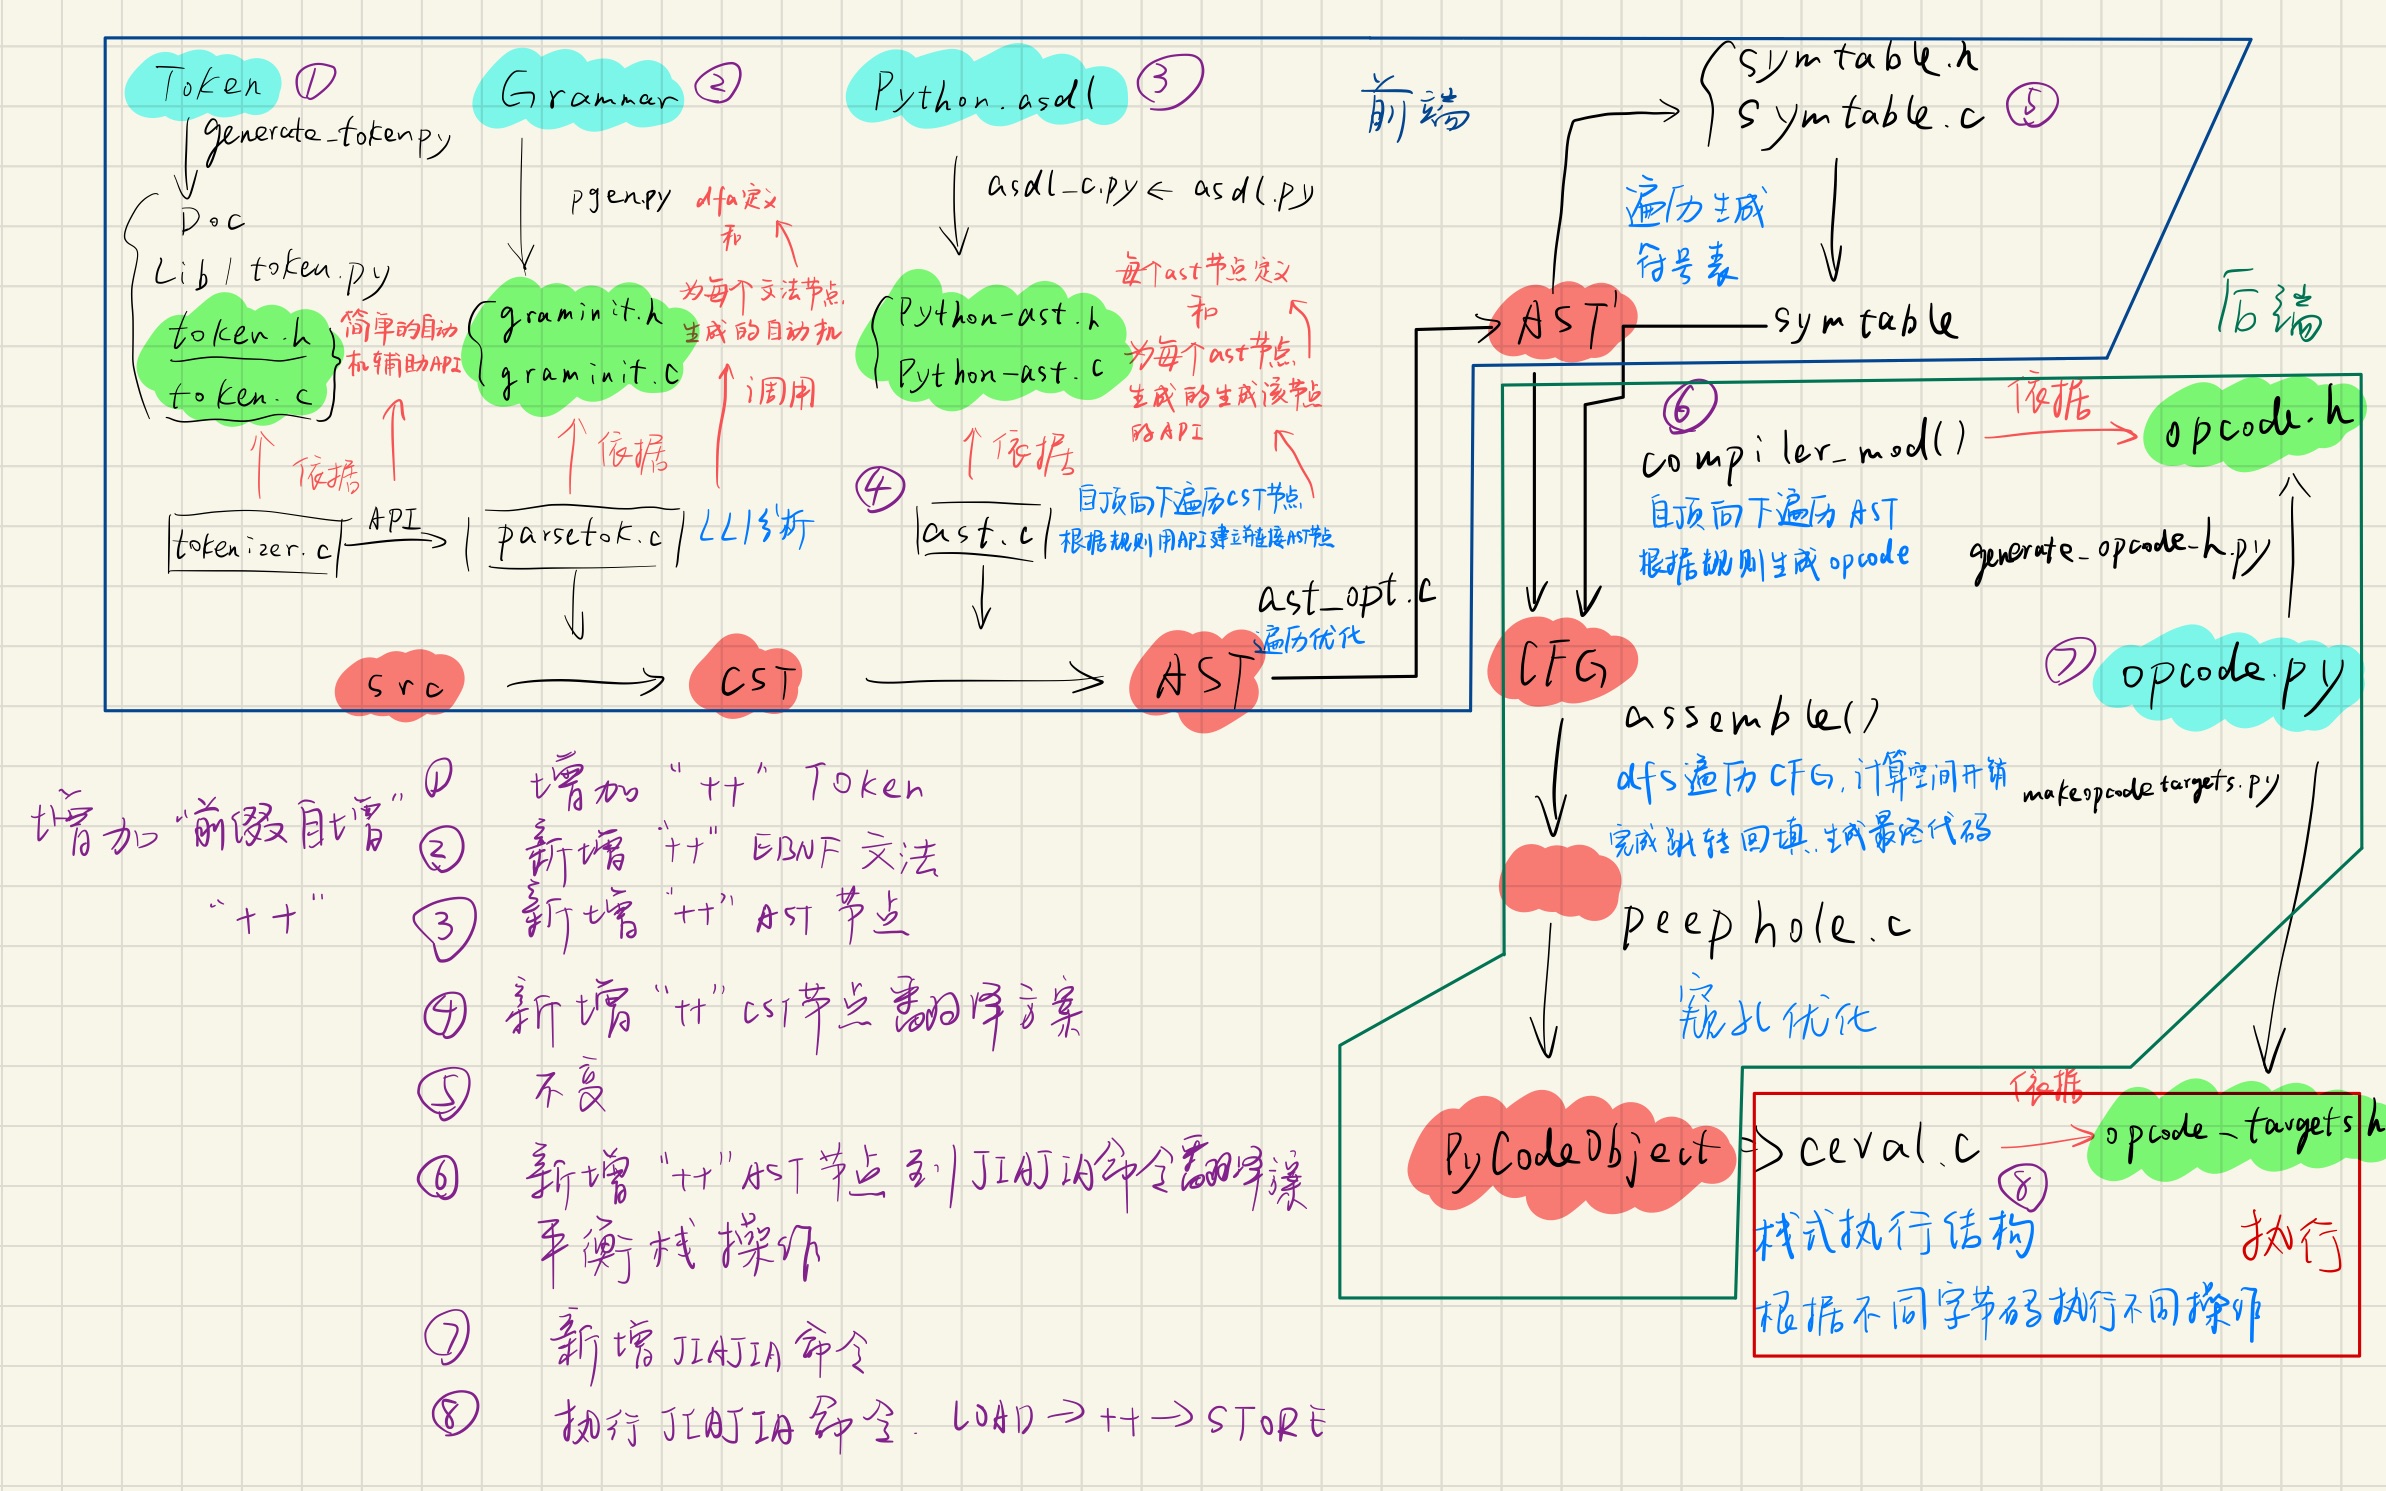 Token ①
generate_token.py
Doc
Lib / token.py
token.h
token.c
简单的自动
机辅助API
依据
tokenizer.c
API
Grammar ②
pgen.py
dfa定义
和
为每个文法节点
生成的自动机
graminit.h
graminit.c
调用
依据
parsetok.c
LL1分析
Python.asdl ③
asdl_c.py ← asdl.py
Python-ast.h
Python-ast.c
每个ast节点定义
和
为每个ast节点
生成的生成该节点
的API
依据
④
ast.c
自顶向下遍历CST节点
根据规则用API建立并链接AST节点
src
CST
AST
ast_opt.c
遍历优化
前端
symtable.h
symtable.c ⑤
遍历生成
符号表
AST'
symtable
后端
⑥
compiler_mod()
依据
opcode.h
自顶向下遍历AST
根据规则生成opcode
generate_opcode_h.py
⑦
opcode.py
CFG
assemble()
dfs遍历CFG,计算空间开销
完成跳转回填,生成最终代码
makeopcodetargets.py
peephole.c
窥孔优化
PyCodeObject
ceval.c
依据
opcode_targets.h
⑧
栈式执行结构
执行
根据不同字节码执行不同操作
增加“前缀自增”
“++”
① 增加“++” Token
② 新增“++” EBNF 文法
③ 新增“++” AST 节点
④ 新增“++” CST节点翻译方案
⑤ 不变
⑥ 新增“++” AST 节点到JIAJIA命令翻译
平衡栈操作
⑦ 新增JIAJIA命令
⑧ 执行JIAJIA命令. LOAD → ++ → STORE